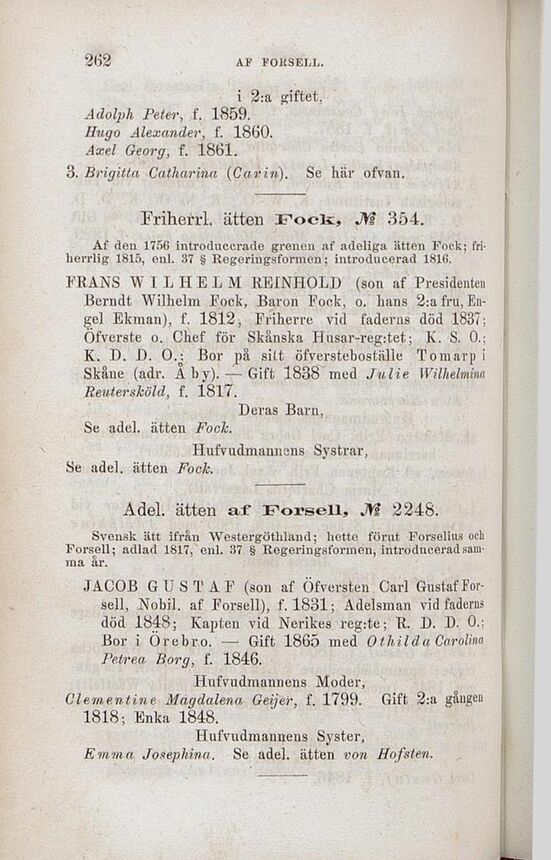 262 AF FORSELL.
i 2:a giftet,
Adolph Peter, f. 1859.
Hugo Alexander, f. 1860.
Axel Georg, f. 1861.
3. Brigitta Catharina (Carin). Se här ofvan.
Friherrl. ätten Fock, № 354.
Af den 1756 introducerade grenen af adeliga ätten Fock; fri-
herrlig 1815, enl. 37 § Regeringsformen; introducerad 1816.
FRANS WILHELM REINHOLD (son af Presidenten
Berndt Wilhelm Fock, Baron Fock, o. hans 2:a fru, En-
gel Ekman), f. 1812, Friherre vid faderns död 1837;
Öfverste o. Chef för Skånska Husar-reg:tet; K. S. O.;
K. D. D. O.; Bor på sitt öfversteboställe Tomarp i
Skåne (adr. Åby). — Gift 1838 med Julie Wilhelmina
Reutersköld, f. 1817.
Deras Barn,
Se adel. ätten Fock.
Hufvudmannens Systrar,
Se adel. ätten Fock.
Adel. ätten af Forsell, № 2248.
Svensk ätt ifrån Westergöthland; hette förut Forselius och
Forsell; adlad 1817, enl. 37 § Regeringsformen, introducerad sam-
ma år.
JACOB GUSTAF (son af Öfversten Carl Gustaf For-
sell, Nobil. af Forsell), f. 1831; Adelsman vid faderns
död 1848; Kapten vid Nerikes reg:te; R. D. D. O.;
Bor i Örebro. — Gift 1865 med Othilda Carolina
Petrea Borg, f. 1846.
Hufvudmannens Moder,
Clementine Magdalena Geijer, f. 1799. Gift 2:a gången
1818; Enka 1848.
Hufvudmannens Syster,
Emma Josephina. Se adel. ätten von Hofsten.